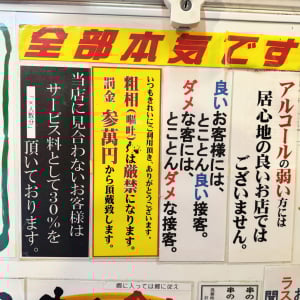 全部本気です
アルコールの弱い方には
居心地の良いお店では
ございません。
良いお客様には、
とことん良い接客。
ダメな客には、
とことんダメな接客。
いつもきれいにご利用頂き、ありがとうございます。
粗相(嘔吐)は厳禁になります。
罰金 参萬円から頂戴致します。
当店に見合わないお客様は
サービス料として30%を
頂いております。
郷に入っては郷に従え
串の
串の